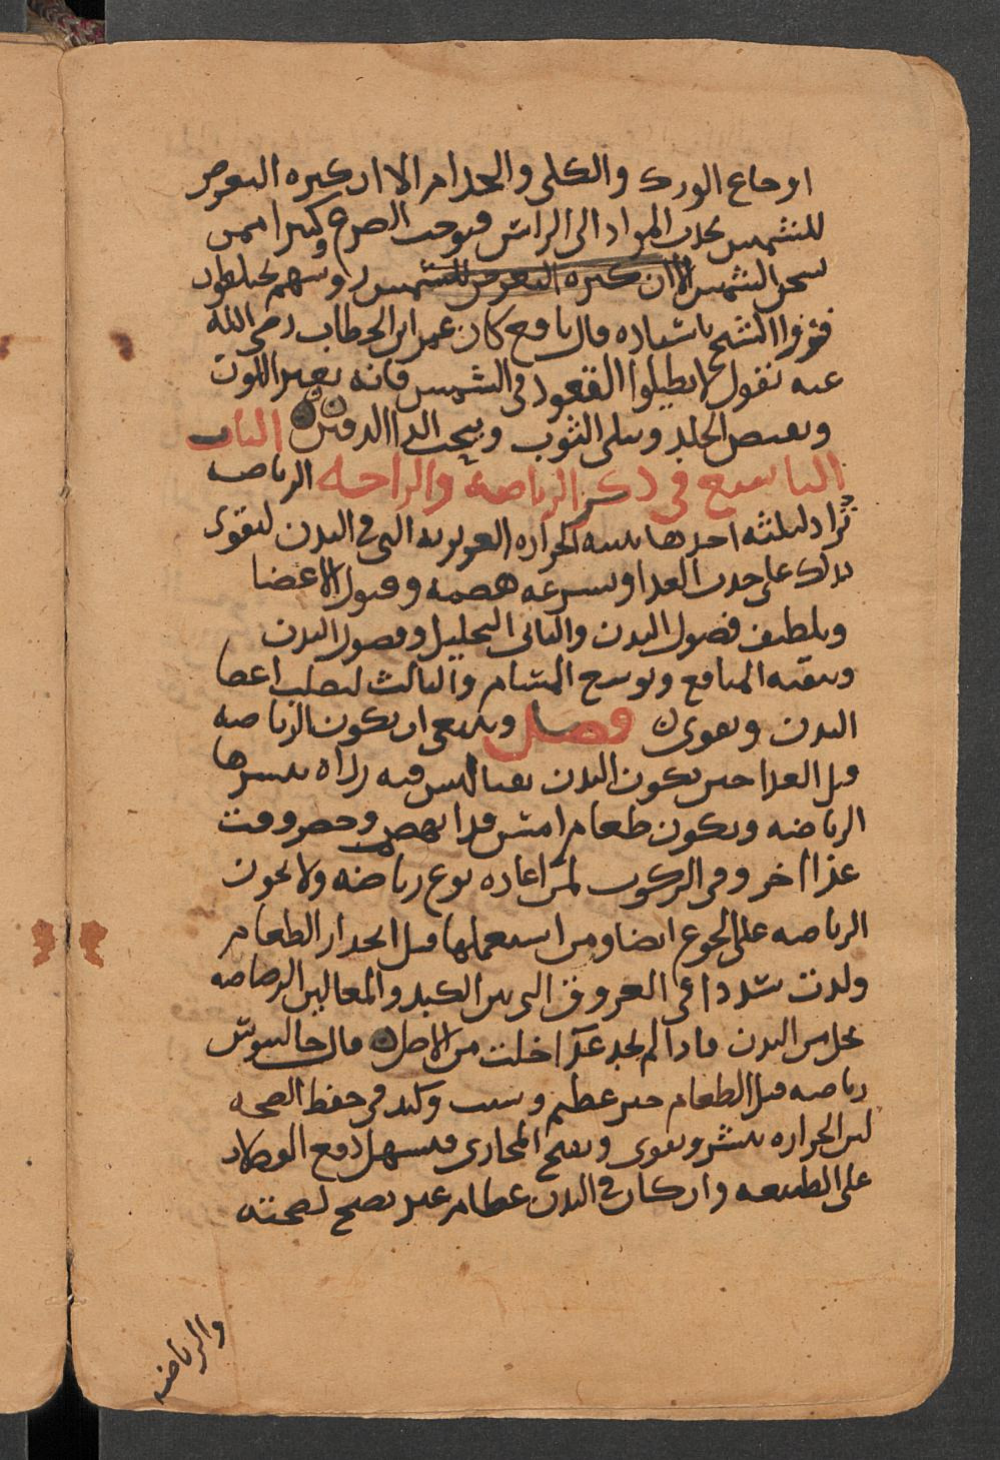 اوجاع الورك والكلى والجدام الا ان كثره التعرض
للشمس يجذب المواد الى الراس فيوجب الصرع وكثيرا ممن
الشمس الا ان كثره التعرض للشمس
الشيخ قال نافع كان عمر ابن الخطاب رضى الله
عنه يقول لا تطيلوا القعود فى الشمس فانه يغير اللون
ويقبض الجلد ويبلى الثوب ويبحث الداا الدفين الباب
التاسع فى ذكر الرياضة والراحه الرياضه
تراد لثلثه احدها تنبيه الحراره الغريزيه التى فى البدن لتقوى
بذلك على جذب الغدا وسرعه هضمه وقبول الاعضا
وتلطيف فضول البدن والثانى التحليل وفضول البدن
وتنقيه المنافع وتوسع المسام والثالث لتصلب اعضا
البدن وتقوى فصل وينبغى ان تكون الرياضه
قبل الغدا حين يكون البدن نقيا ليس فيه
الرياضه ويكون طعام امس قد انهضم وحضر وقت
غذا اخر وفى الركوب لمن اعاده نوع رياضه ولا تجوز
الرياضه على الجوع ايضا ومن استعملها قبل انحدار الطعام
ولدت سددا فى العروق التى بين الكبد والمعا لان الرياضه
تحلل من البدن فاذا لم تجد غذا اخلت من الاصل قال جالينوس
رياضه قبل الطعام خير عظيم وسبب وكيد فى حفظ الصحه
لان الحراره تنتشر وتقوى وتفتح المجارى فيسهل دفع
على الطبيعه وان كان فى البدن طعام غير نضج لصحته
والرياضه